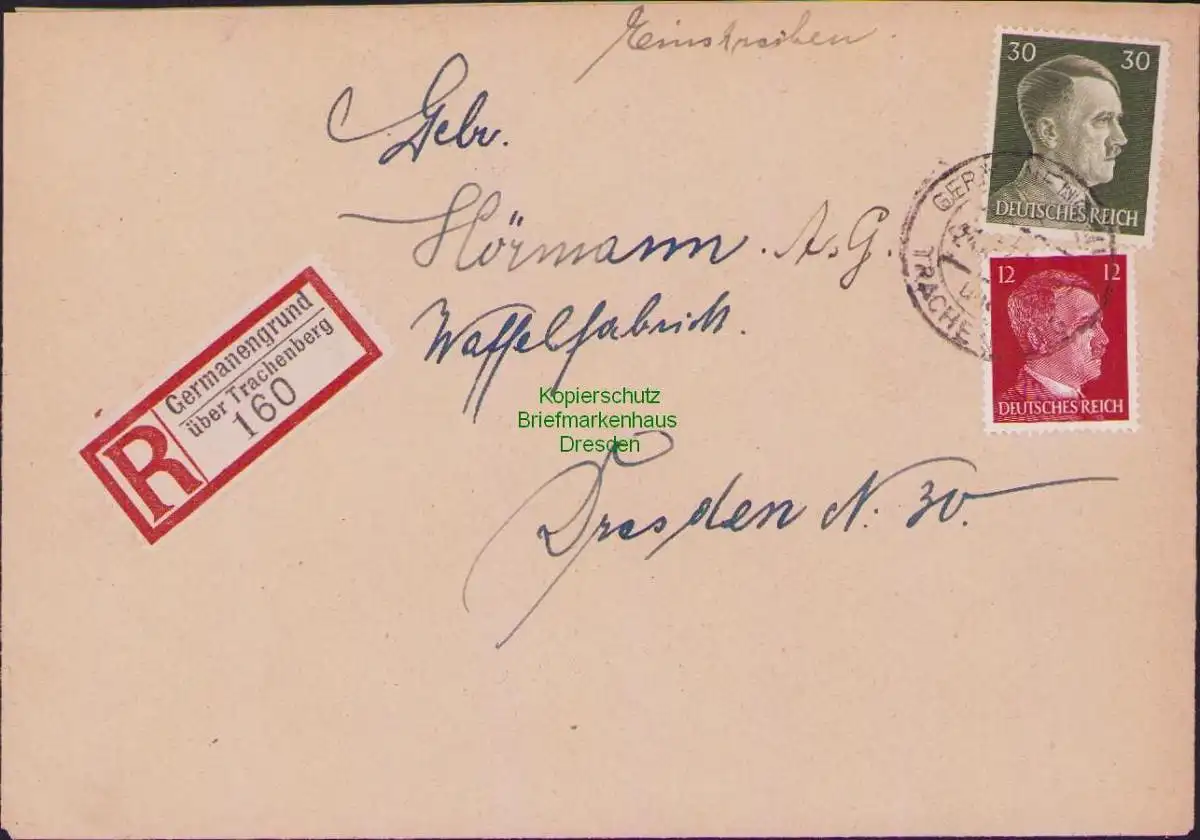 Einschreiben.
30 30
DEUTSCHES REICH
Gebr.
Hörmann. A.G.
Waffelfabrick.
12 12
DEUTSCHES REICH
TRACHE
Germanengrund
über Trachenberg
160
R
Kopierschutz
Briefmarkenhaus
Dresden
Dresden N. 30.